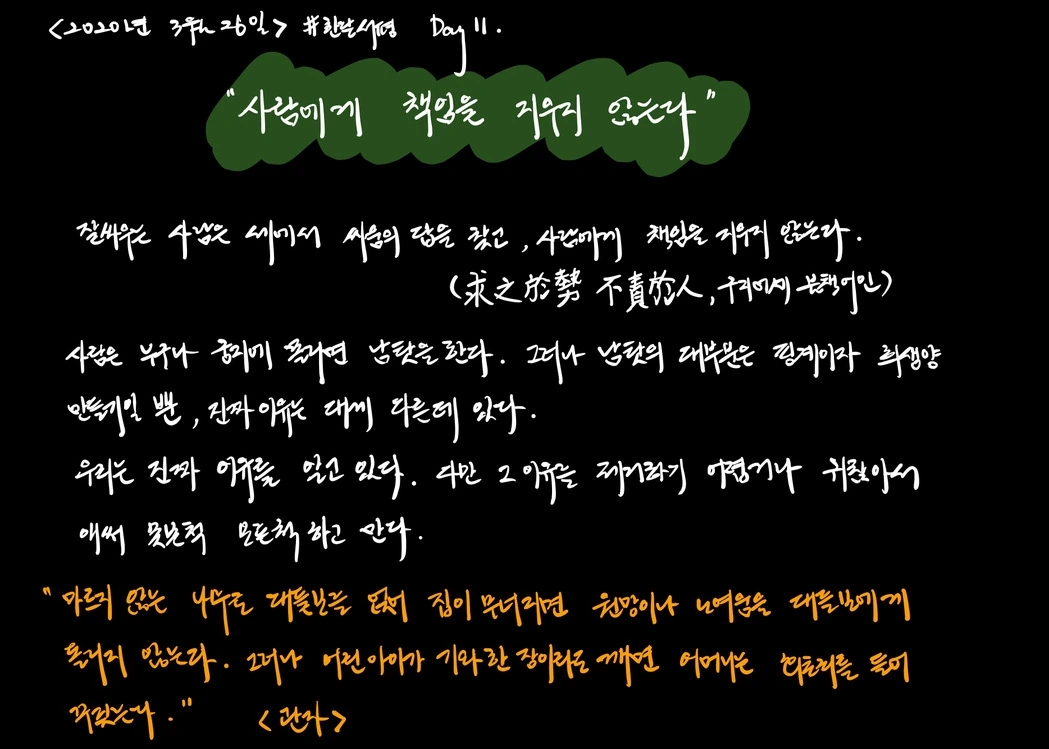 <2020년 3월 26일> #한달서평 Day 11.
"사람에게 책임을 지우지 않는다"
잘싸우는 사람은 세에서 싸움의 답을 찾고, 사람에게 책임을 지우지 않는다.
(求之於勢 不責於人, 구지어세 불책어인)
사람은 누구나 궁지에 몰리면 남탓을 한다. 그러나 남탓의 대부분은 핑계이자 희생양
만들기일 뿐, 진짜 이유는 대게 다른데 있다.
우리는 진짜 이유를 알고 있다. 다만 그 이유를 제거하기 어렵거나 귀찮아서
애써 못본척 모른척 하고 만다.
"마르지 않는 나무로 대들보를 얹어 집이 무너지면 원망이나 노여움을 대들보에게
돌리지 않는다. 그러나 어린아이가 기와 한 장이라도 깨면 어머니는 회초리를 들어
꾸짖는다." <관자>